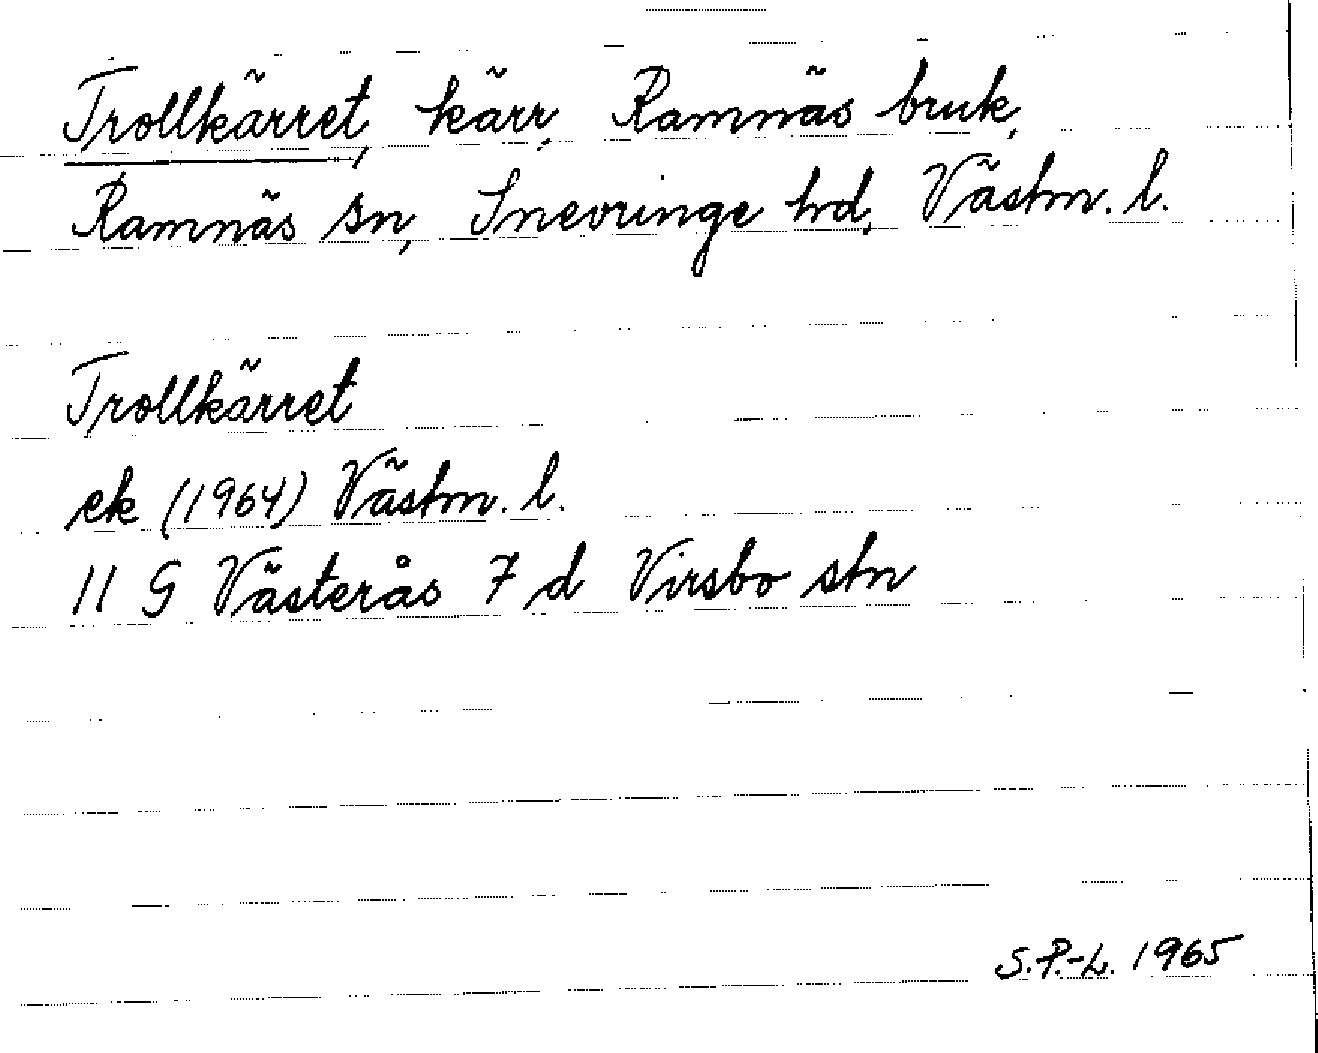 Trollkärret, kärr, Ramnäs bruk,
Ramnäs sn, Snevringe hd, Västm. l.
Trollkärret
ek (1964) Västm. l.
11 G Västerås 7 d Virsbo stn
S.P.-L. 1965